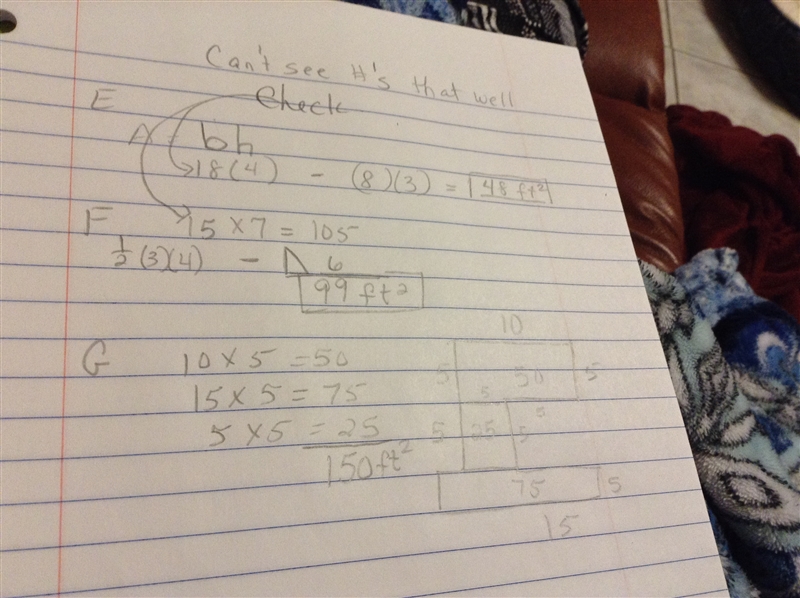 Can't see #'s that well
E Check
A bh
18(4) - (8)(3) = 48 ft²
F 15 × 7 = 105
½(3)(4) - 6
99 ft²
G 10 × 5 = 50
15 × 5 = 75
5 × 5 = 25
150 ft²
10
5 50 5
5
5 25 5 5
75 5
15